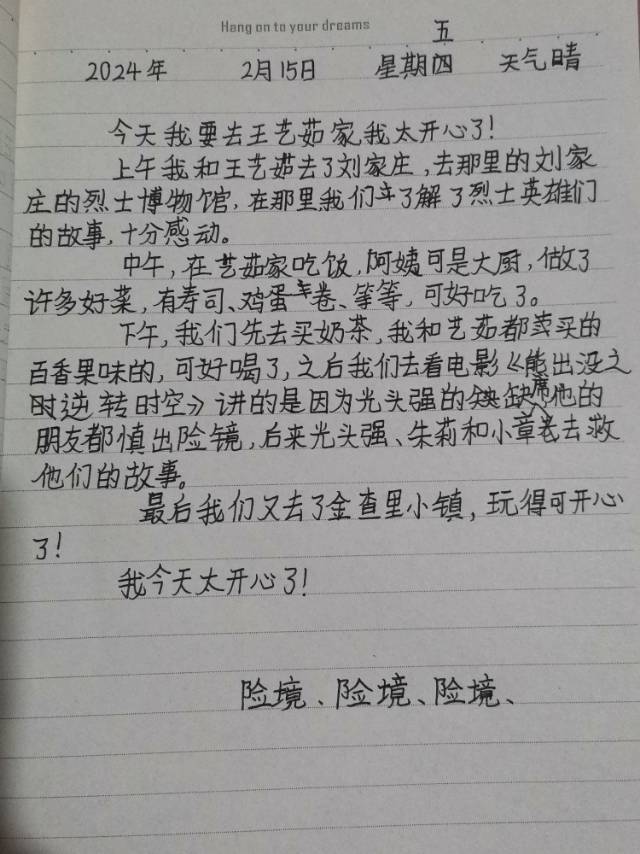 Hang on to your dreams
五
2024年 2月15日 星期四 天气晴
今天我要去王艺茹家我太开心了!
上午我和王艺茹去了刘家庄,去那里的刘家
庄的烈士博物馆,在那里我们了解了烈士英雄们
的故事,十分感动。
中午,在艺茹家吃饭,阿姨可是大厨,做了
许多好菜,有寿司、鸡蛋卷、等等,可好吃了。
下午,我们先去买奶茶,我和艺茹都卖买的
百香果味的,可好喝了,之后我们去看电影《熊出没之
时逆转时空》讲的是因为光头强的缺席他的
朋友都慎出险镜,后来光头强、朱莉和小章去救
他们的故事。
最后我们又去了金查里小镇,玩得可开心
了!
我今天太开心了!
险境、险境、险境、